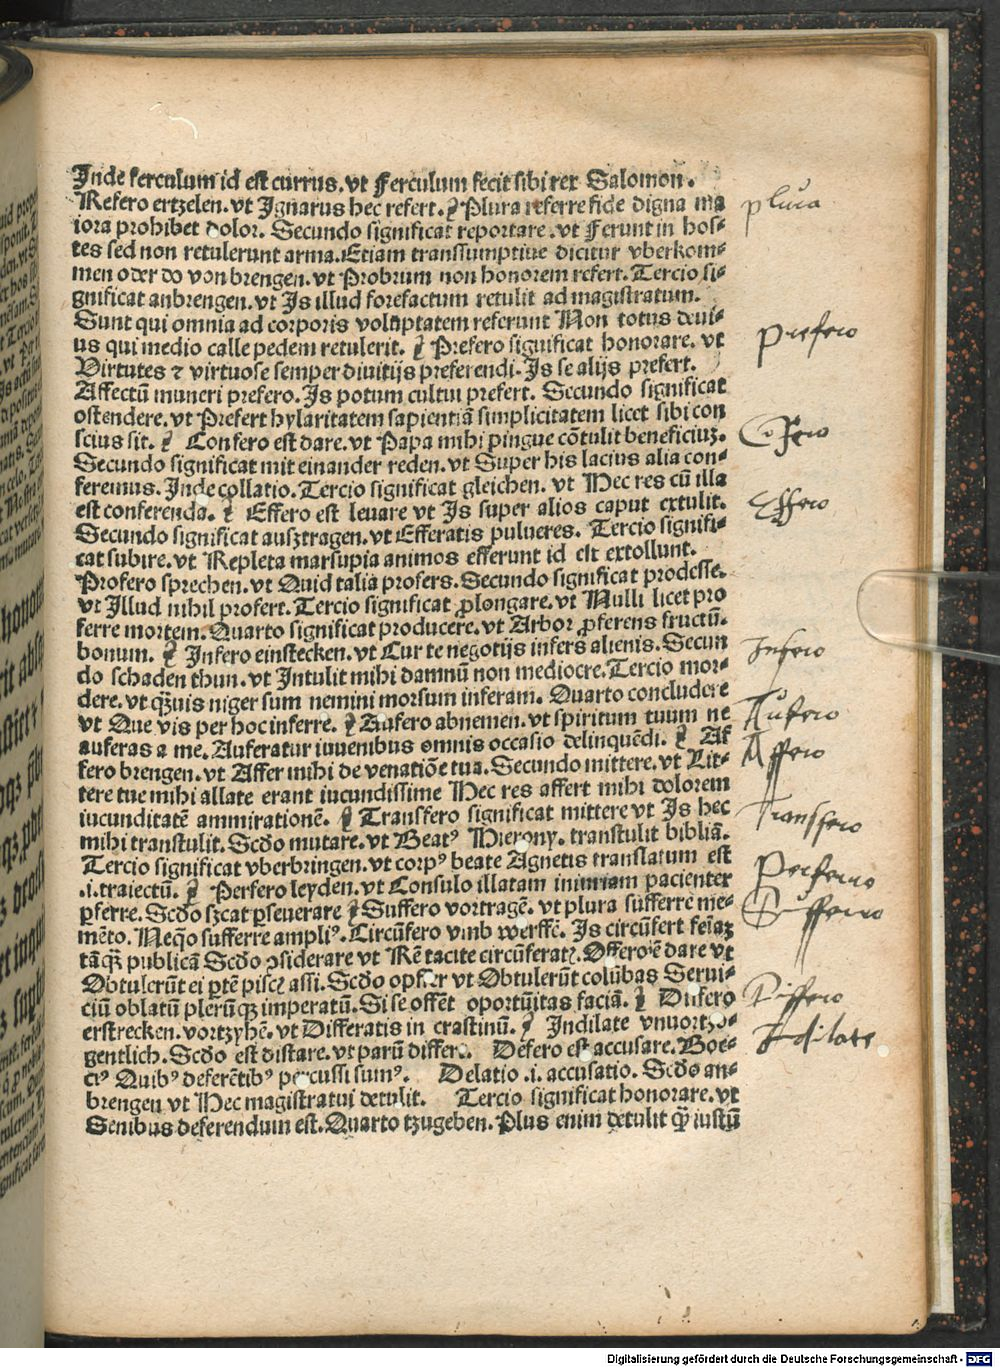 Inde ferculum id est currus. vt Ferculum fecit sibi rex Salomon.
Refero ertzelen. vt Ignarus hec refert. ¶ Plura referre fide digna ma
iora prohibet dolor. Secundo significat reportare. vt Ferunt in hos-
tes sed non retulerunt arma. Etiam transsumptiue dicitur vberkom-
men oder do von brengen. vt Probrum non honorem refert. Tercio si-
gnificat anbrengen. vt Is illud forefactum retulit ad magistratum.
Sunt qui omnia ad corporis voluptatem referunt Non totus deui-
us qui medio calle pedem retulerit. ¶ Prefero significat honorare. vt
Virtutes ⁊ virtuose semper diuitijs preferendi. Is se alijs prefert.
Affectū muneri prefero. Is potum cultui prefert. Secundo significat
ostendere. vt Prefert hylaritatem sapientiā simplicitatem licet sibi con
scius sit. ¶ Confero est dare. vt Papa mihi pingue cōtulit beneficiuꝫ.
Secundo significat mit einander reden. vt Super his lacius alia con-
feremus. Inde collatio. Tercio significat gleichen. vt Hec res cū illa
est conferenda. ¶ Effero est leuare vt Is super alios caput extulit.
Secundo significat ausztragen. vt Efferatis pulueres. Tercio signifi-
cat subire. vt Repleta marsupia animos efferunt id est extollunt.
Profero sprechen. vt Quid talia profers. Secundo significat prodesse.
vt Illud nihil profert. Tercio significat ꝓlongare. vt Nulli licet pro
ferre mortem. Quarto significat producere. vt Arbor ꝓferens fructū.
bonum. ¶ Infero einstecken. vt Cur te negotijs infers alienis. Secun
do schaden thun. vt Intulit mihi damnū non mediocre. Tercio mor-
dere. vt qꝫuis niger sum nemini morsum inferam. Quarto concludere
vt Que vis per hoc inferre. ¶ Aufero abnemen. vt spiritum tuum ne
auferas a me. Auferatur iuuenibus omnis occasio delinquēdi. ¶ Af
fero brengen. vt Affer mihi de venatiōe tua. Secundo mittere. vt Lit-
tere tue mihi allate erant iucundissime Hec res affert mihi dolorem
iucunditatē ammirationē. ¶ Transfero significat mittere vt Is hec
mihi transtulit. Scđo mutare. vt Beatꝰ Hierony. transtulit bibliā.
Tercio significat vberbringen. vt corpꝰ beate Agnetis translatum est
.i. traiectū. ¶ Perfero leyden. vt Consulo illatam iniuriam pacienter
ꝑferre. Scđo sꝫcat ꝑseuerare ¶ Suffero vortragē. vt plura sufferre me-
mēto. Neqͦo sufferre ampliꝰ. Circūfero vmb werffē. Is circūfert
tāqꝫ publicā Scđo ꝯsiderare vt Rē tacite circūferatꝭ. Offero ē dare vt
Obtulerūt ei ꝑtē piscꝭ assi. Scđo opfer vt Obtulerūt colūbas Serui-
ciū oblatū plerūqꝫ imperatū. Si se offēt oportūitas faciā. ¶ Differo
erstrecken. vortzyhē. vt Differatis in crastinū. ¶ Indilate vnuortzo-
gentlich. Scđo est distare. vt parū differ. Defero est accusare. Boe-
ciꝰ Quibꝰ deferētibꝰ percussi sumꝰ. Delatio .i. accusatio. Scđo an-
brengen vt Hec magistratui detulit. Tercio significat honorare. vt
Senibus deferendum est. Quarto tzugeben. Plus enim detulit qꝫ iustū
plura
Prefero
Cōfero
Effero
Infero
Aufero
Affero
Transfero
Perfero
Suffero
Differo
Indilate
Digitalisierung gefördert durch die Deutsche Forschungsgemeinschaft - DFG